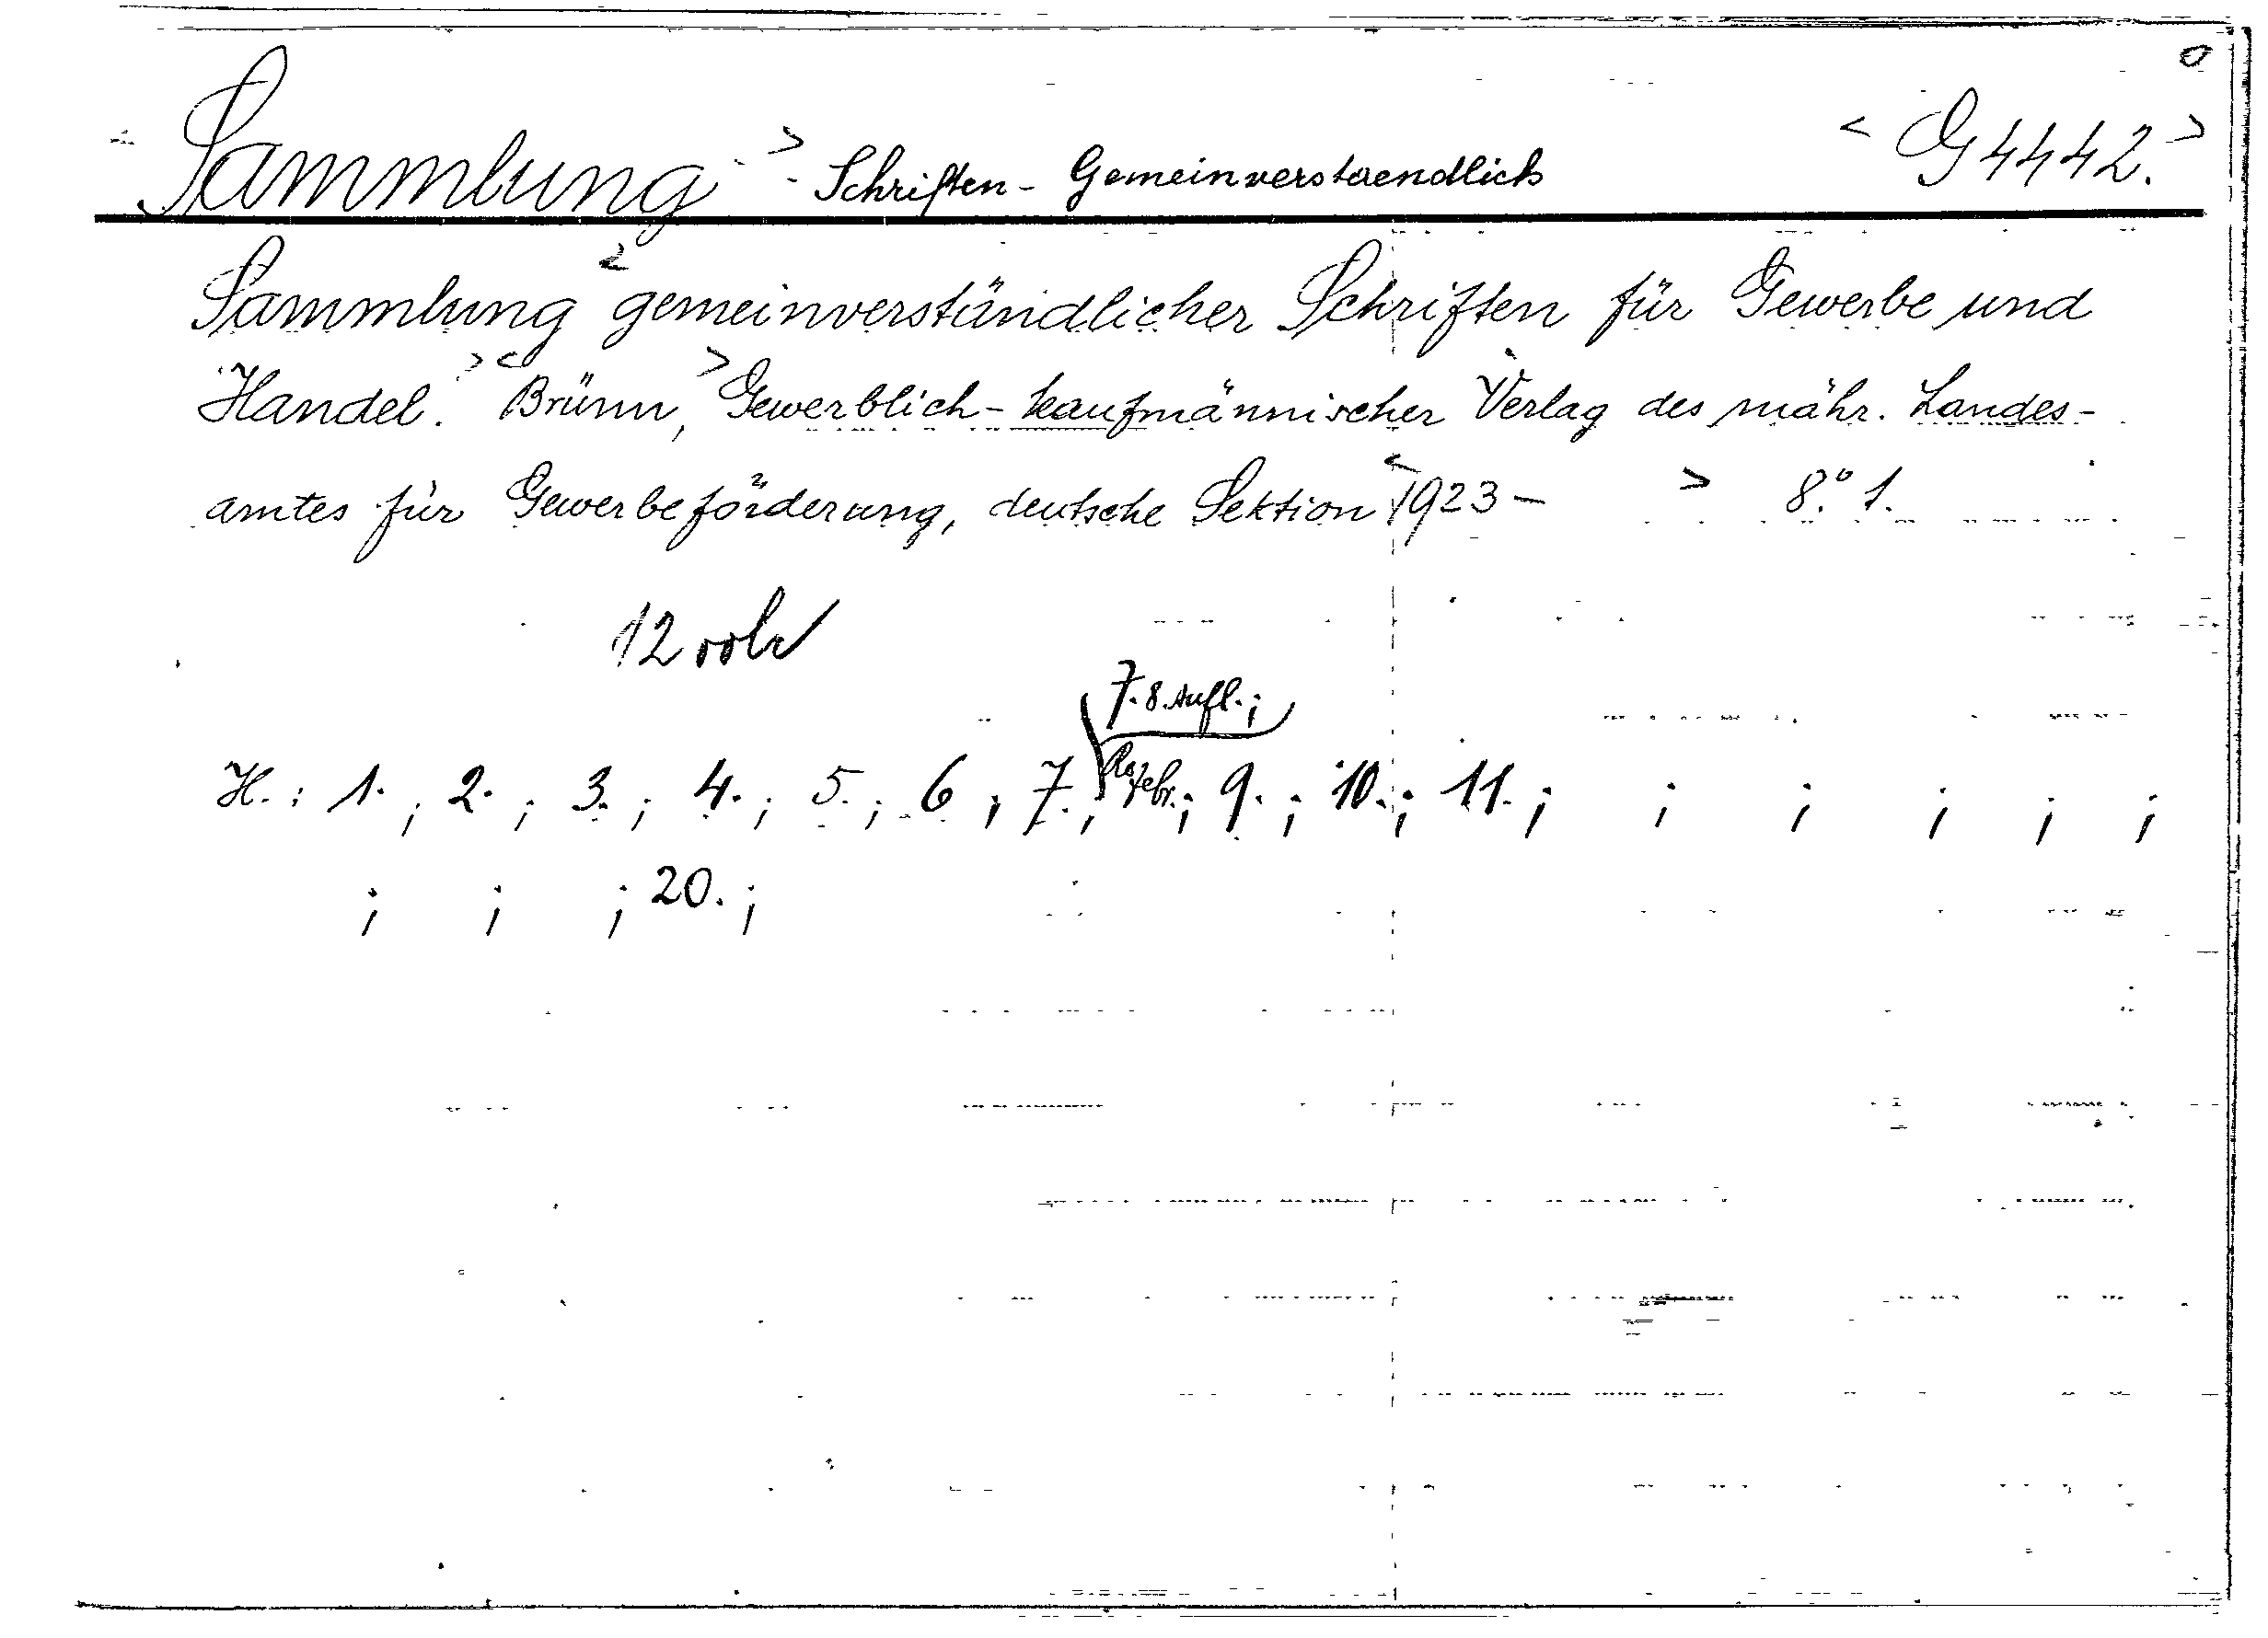 Sammlung > - Schriften - Gemeinverstaendlich < G 4442. >
Sammlung < gemeinverständlicher Schriften für Gewerbe und
Handel. > < Brünn, > Gewerblich-kaufmännischer Verlag des mähr. Landes-
amtes für Gewerbeförderung, deutsche Sektion < 1923 — > 8.° 1.
12 vol
7. 8. Aufl.;
H.: 1. ; 2. ; 3. ; 4. ; 5. ; 6 ; 7. ; ; 9. ; 10. ; 11. ; ; ; ; ; ;
; ; ; 20. ;